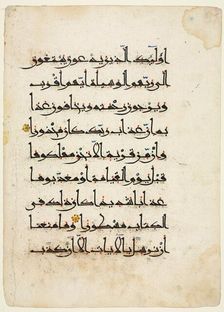 أولئك الذين يدعون يبتغون
إلى ربهم الوسيلة أيهم أقرب
ويرجون رحمته ويخافون عذا
به إن عذاب ربك كان محذورا
وإن من قرية إلا نحن مهلكوها
قبل يوم القيمة أو معذبوها
عذابا شديدا كان ذلك في
الكتاب مسطورا وما منعنا
أن نرسل بالآيات إلا أن كذب